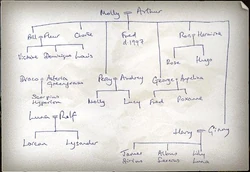 Molly Arthur
Bill Fleur Charlie Fred Ron Hermione
d 1997
Victoire Dominique Louis Rose Hugo
Draco Astoria Percy Audrey George Angelina
Greengrass
Scorpius Molly Lucy Fred Roxanne
Hyperion
Luna Rolf
Harry Ginny
Lorcan Lysander
James Albus Lily
Sirius Severus Luna